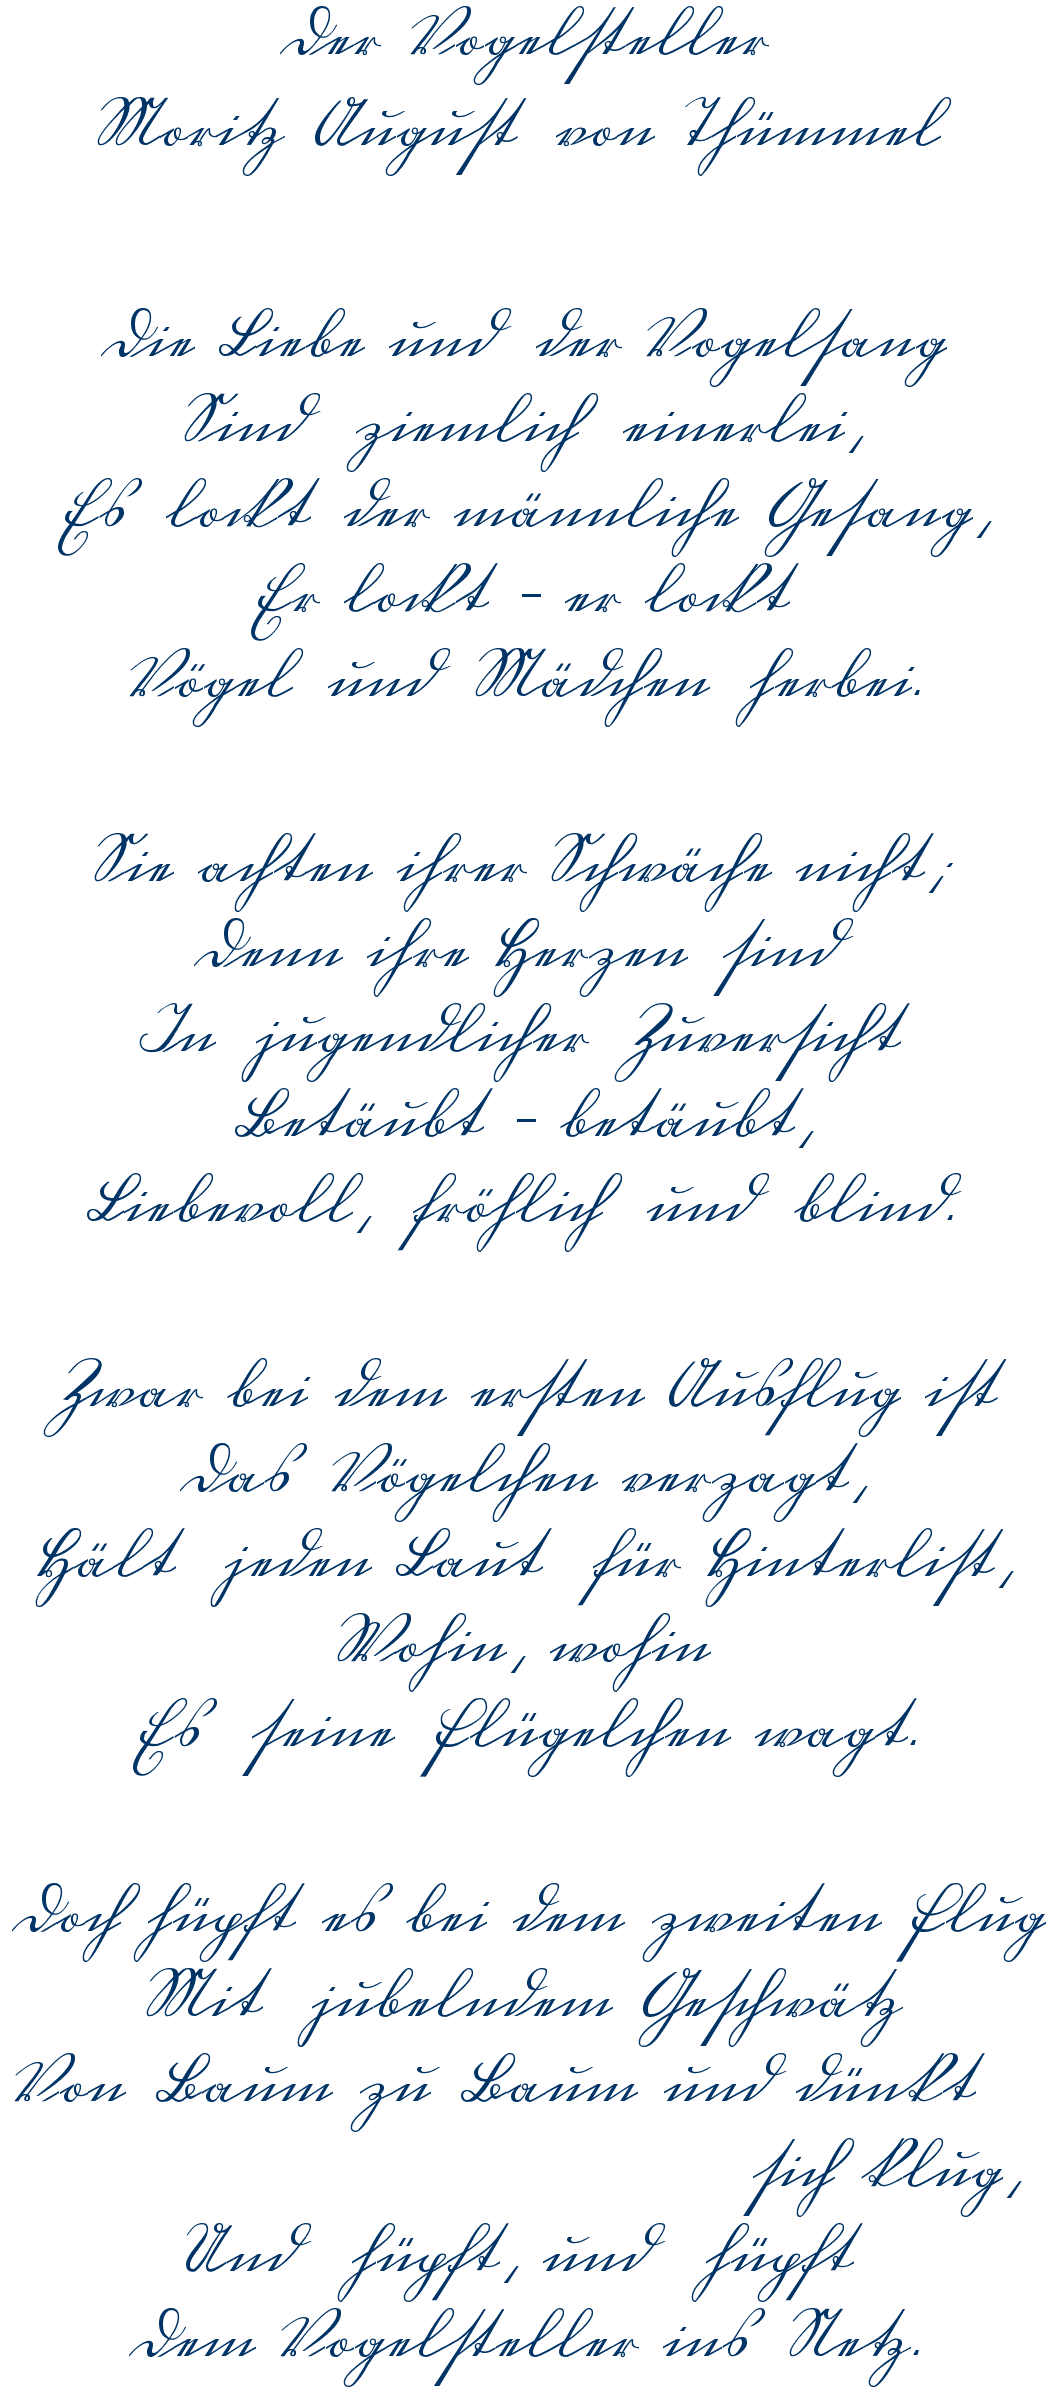 Der Vogelsteller
Moritz August von Thümmel
Die Liebe und der Vogelsang
Sind ziemlich einerlei,
Es lockt der männliche Gesang,
Er lockt - er lockt
Vögel und Mädchen herbei.
Sie achten ihrer Schwäche nicht;
Denn ihre Herzen sind
In jugendlicher Zuversicht
Betäubt - betäubt,
Liebevoll, fröhlich und blind.
Zwar bei dem ersten Ausflug ist
Das Vögelchen verzagt,
Hält jeden Laut für Hinterlist,
Wohin, wohin
Es seine Flügelchen wagt.
Doch hüpft es bei dem zweiten Flug
Mit jubelndem Geschwätz
Von Baum zu Baum und dünkt
sich klug,
Und hüpft, und hüpft
Dem Vogelsteller ins Netz.